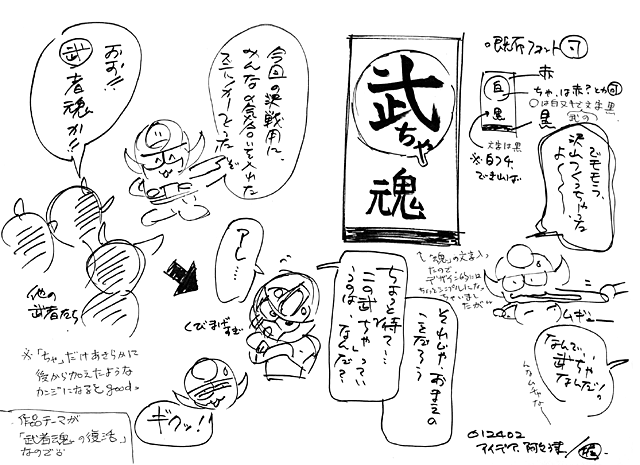 おお!!
武
者魂か!!
今回の決戦用に、
みんなの気合いを入れた
ステッカーをつくった
ぞ
武ちゃ
魂
既存フォント可
赤
白
黒
ちゃ、は赤?とか可
黒
文字は黒
※白フチ
できれば
でもモう、
沢山つくっちゃった
よ〜
他の
武者たち
くびまげすぎ
アレ…
ちょっと待て…
この"武ちゃ"ってい
うのは、なんだ?
それじゃ、おまえの
ことだろう
「魂」の文字入
たので
デザイン的には
ちょっとシンプルになっ
ちゃいまし
たが…
ムギュー
なんで、
武ちゃ
なんだ!!
※「ちゃ」だけあきらかに
後から加えたような
カンジになるとgood。
ギクッ!!
作品テーマが
「武者魂」の復活」
なので
012402
アイデア.